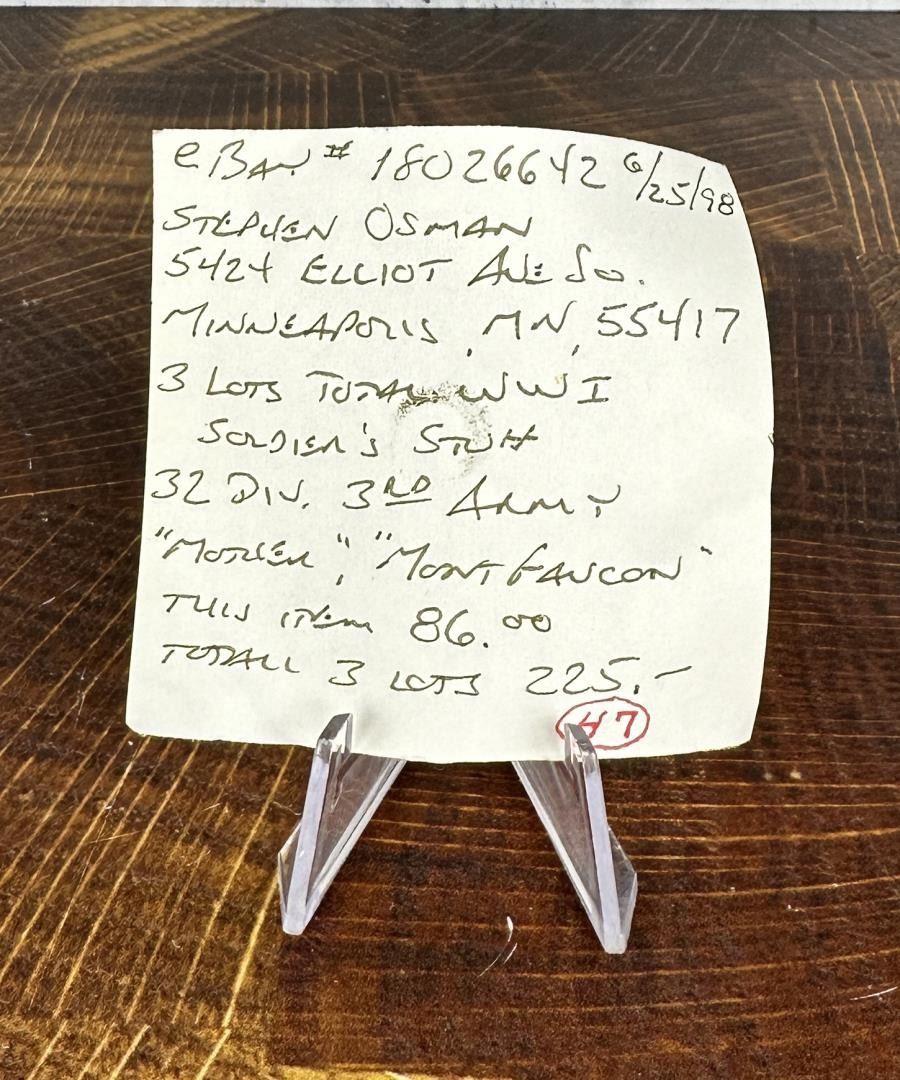 eBay # 18026642 6/25/98
STEPHEN OSMAN
5424 ELLIOT AVE So.
MINNEAPOLIS, MN, 55417
3 LOTS TOTAL WWI
SOLDIER'S STUFF
32 DIV. 3RD ARMY
"MOSLER", "MONTFAUCON"
THIS ITEM 86.00
TOTALL 3 LOTS 225.-
H7